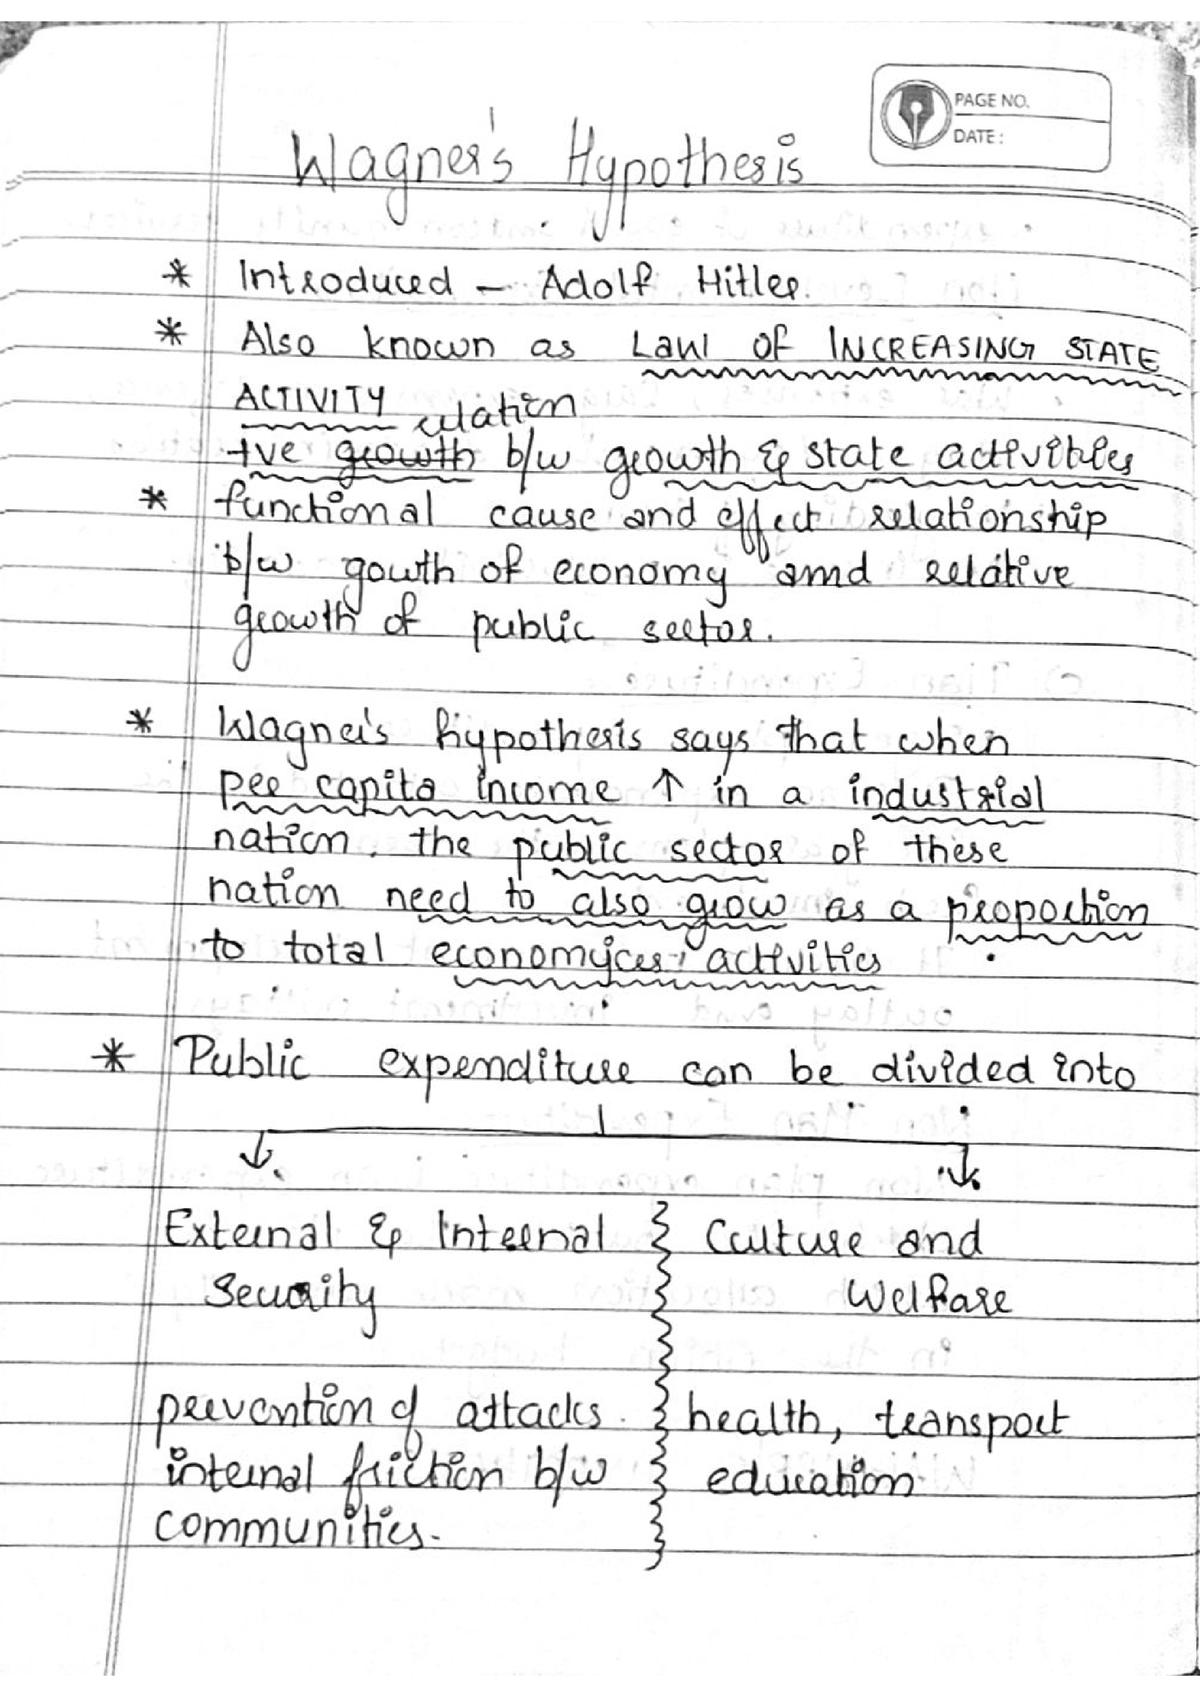 PAGE NO.
DATE:
Wagner's Hypothesis
* Introduced - Adolf Hitler.
* Also known as LAW OF INCREASING STATE
ACTIVITY
relation
+ve growth b/w growth & state activities
* functional cause and effect relationship
b/w gowth of economy amd relative
growth of public sector.
* Wagner's hypothesis says that when
per capita income ↑ in a industrial
nation, the public sector of these
nation need to also grow as a proportion
to total activities
* Public expenditure can be divided into
External & Internal Security
Culture and Welfare
prevention of attacks.
internal friction b/w
communities.
health, transport
education